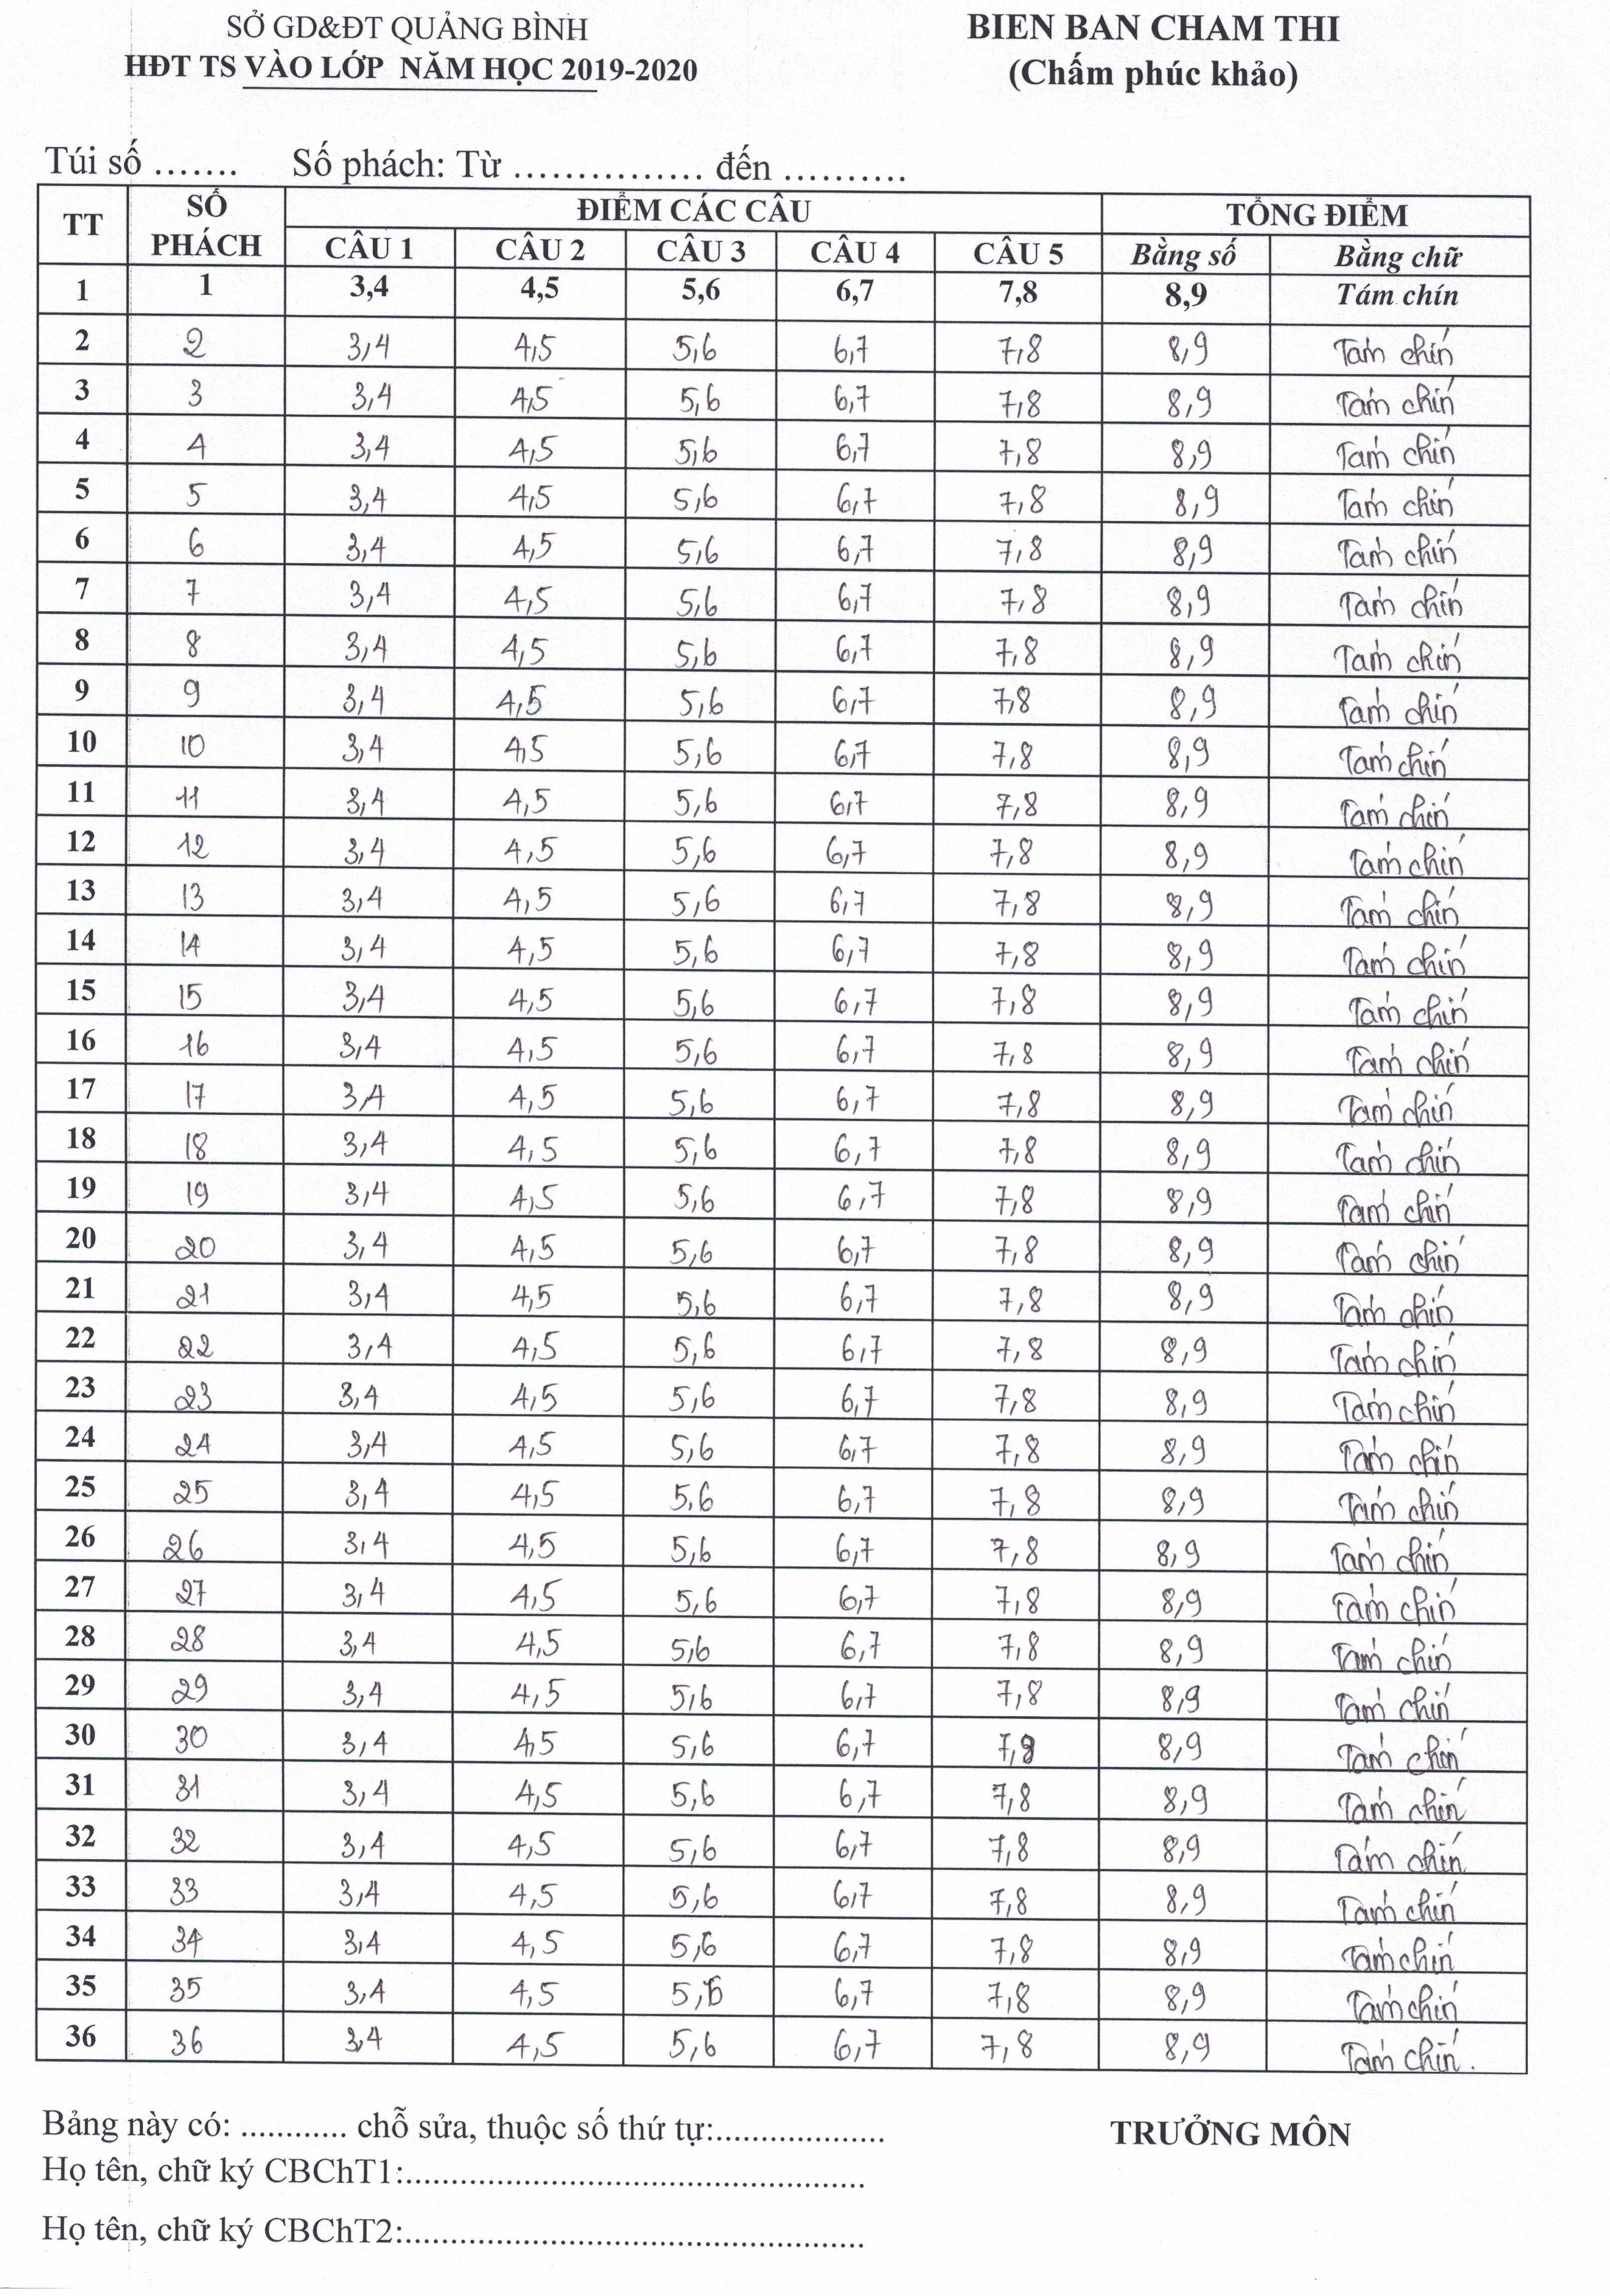 SỞ GD&ĐT QUẢNG BÌNH
HĐT TS VÀO LỚP NĂM HỌC 2019-2020
BIEN BAN CHAM THI
(Chấm phúc khảo)
Túi số ....... Số phách: Từ ............... đến ..........
TT SỐ PHÁCH ĐIỂM CÁC CÂU TỔNG ĐIỂM
CÂU 1 CÂU 2 CÂU 3 CÂU 4 CÂU 5 Bằng số Bằng chữ
1 1 3,4 4,5 5,6 6,7 7,8 8,9 Tám chín
2 2 3,4 4,5 5,6 6,7 7,8 8,9 Tám chín
3 3 3,4 4,5 5,6 6,7 7,8 8,9 Tám chín
4 4 3,4 4,5 5,6 6,7 7,8 8,9 Tám chín
5 5 3,4 4,5 5,6 6,7 7,8 8,9 Tám chín
6 6 3,4 4,5 5,6 6,7 7,8 8,9 Tám chín
7 7 3,4 4,5 5,6 6,7 7,8 8,9 Tám chín
8 8 3,4 4,5 5,6 6,7 7,8 8,9 Tám chín
9 9 3,4 4,5 5,6 6,7 7,8 8,9 Tám chín
10 10 3,4 4,5 5,6 6,7 7,8 8,9 Tám chín
11 11 3,4 4,5 5,6 6,7 7,8 8,9 Tám chín
12 12 3,4 4,5 5,6 6,7 7,8 8,9 Tám chín
13 13 3,4 4,5 5,6 6,7 7,8 8,9 Tám chín
14 14 3,4 4,5 5,6 6,7 7,8 8,9 Tám chín
15 15 3,4 4,5 5,6 6,7 7,8 8,9 Tám chín
16 16 3,4 4,5 5,6 6,7 7,8 8,9 Tám chín
17 17 3,4 4,5 5,6 6,7 7,8 8,9 Tám chín
18 18 3,4 4,5 5,6 6,7 7,8 8,9 Tám chín
19 19 3,4 4,5 5,6 6,7 7,8 8,9 Tám chín
20 20 3,4 4,5 5,6 6,7 7,8 8,9 Tám chín
21 21 3,4 4,5 5,6 6,7 7,8 8,9 Tám chín
22 22 3,4 4,5 5,6 6,7 7,8 8,9 Tám chín
23 23 3,4 4,5 5,6 6,7 7,8 8,9 Tám chín
24 24 3,4 4,5 5,6 6,7 7,8 8,9 Tám chín
25 25 3,4 4,5 5,6 6,7 7,8 8,9 Tám chín
26 26 3,4 4,5 5,6 6,7 7,8 8,9 Tám chín
27 27 3,4 4,5 5,6 6,7 7,8 8,9 Tám chín
28 28 3,4 4,5 5,6 6,7 7,8 8,9 Tám chín
29 29 3,4 4,5 5,6 6,7 7,8 8,9 Tám chín
30 30 3,4 4,5 5,6 6,7 7,8 8,9 Tám chín
31 31 3,4 4,5 5,6 6,7 7,8 8,9 Tám chín
32 32 3,4 4,5 5,6 6,7 7,8 8,9 Tám chín
33 33 3,4 4,5 5,6 6,7 7,8 8,9 Tám chín
34 34 3,4 4,5 5,6 6,7 7,8 8,9 Tám chín
35 35 3,4 4,5 5,6 6,7 7,8 8,9 Tám chín
36 36 3,4 4,5 5,6 6,7 7,8 8,9 Tám chín.
Bảng này có: ............ chỗ sửa, thuộc số thứ tự:...................
TRƯỞNG MÔN
Họ tên, chữ ký CBChT1:...................................................
Họ tên, chữ ký CBChT2:...................................................